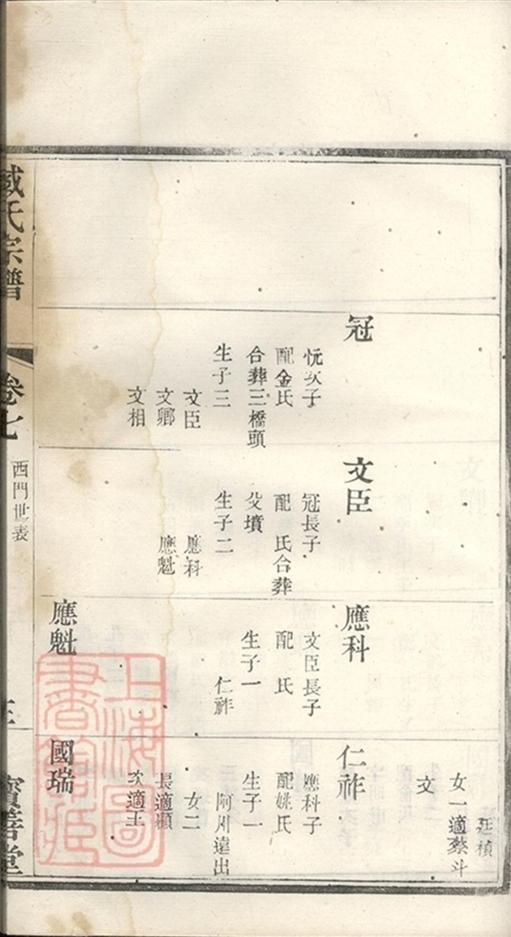 冠
忱次子
配金氏
合葬三橋頭
生子三
文臣
文卿
文相
文臣
冠長子
配 氏合葬
父墳
生子二
應科
應魁
應科
文臣長子
配 氏
生子一
仁祚
應魁
廷楨
女一適蔡斗
文
仁祚
應科子
配姚氏
生子一
阿用遠出
女二
長適顧
次適王
國瑞
臧氏宗譜
卷七
西門世表
寶善堂
上海圖
書館藏